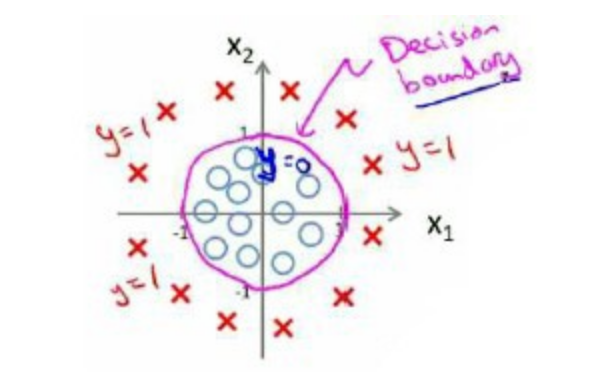 x₂
Decision
boundary
1
y=1
y=0
y=1
-1
1
x₁
y=1
-1